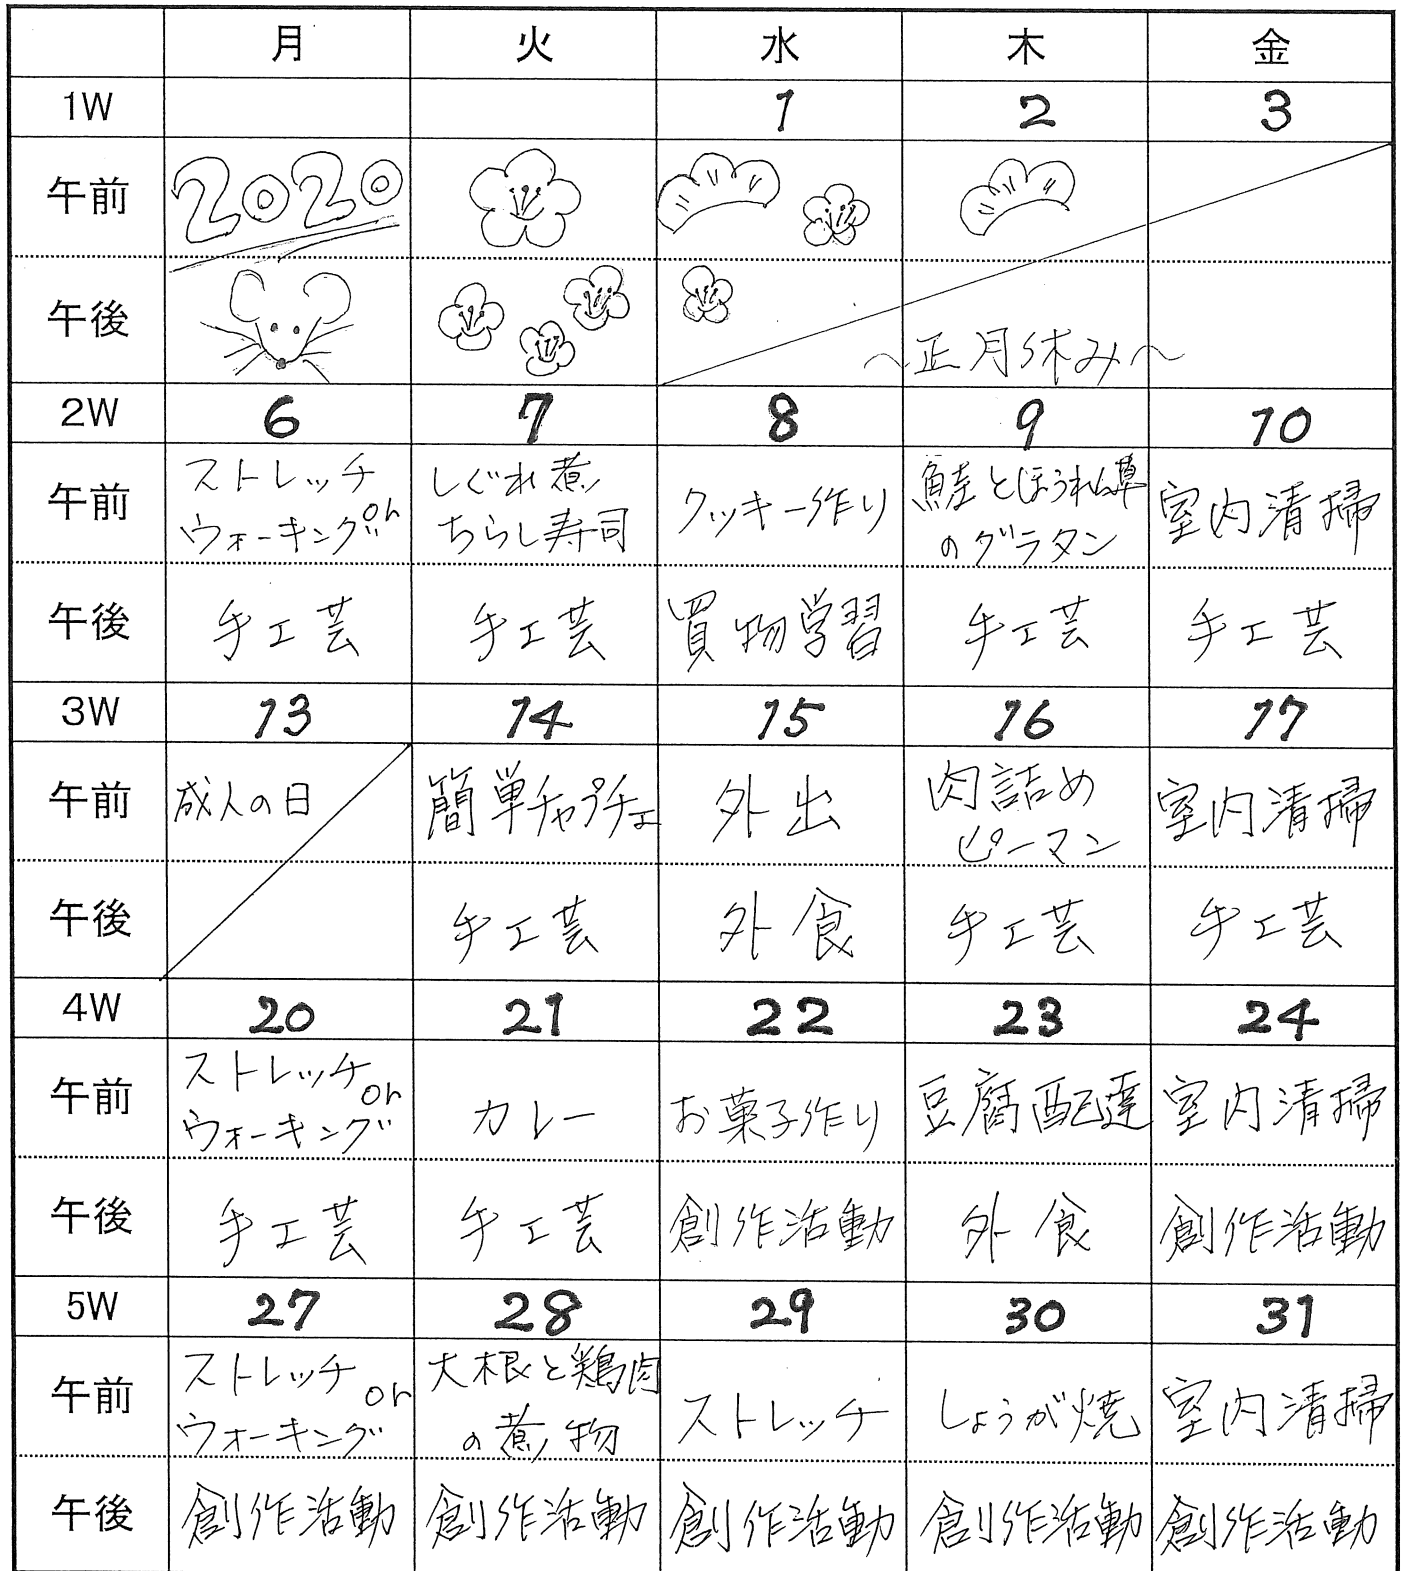 月 火 水 木 金
1W 1 2 3
午前 2020
午後 ～正月休み～
2W 6 7 8 9 10
午前 ストレッチor ウォーキング しぐれ煮 ちらし寿司 クッキー作り 鮭とほうれん草 のグラタン 室内清掃
午後 手工芸 手工芸 買物学習 手工芸 手工芸
3W 13 14 15 16 17
午前 成人の日 簡単チャプチェ 外出 肉詰め ピーマン 室内清掃
午後 手工芸 外食 手工芸 手工芸
4W 20 21 22 23 24
午前 ストレッチor ウォーキング カレー お菓子作り 豆腐配達 室内清掃
午後 手工芸 手工芸 創作活動 外食 創作活動
5W 27 28 29 30 31
午前 ストレッチor ウォーキング 大根と鶏肉 の煮物 ストレッチ しょうが焼 室内清掃
午後 創作活動 創作活動 創作活動 創作活動 創作活動